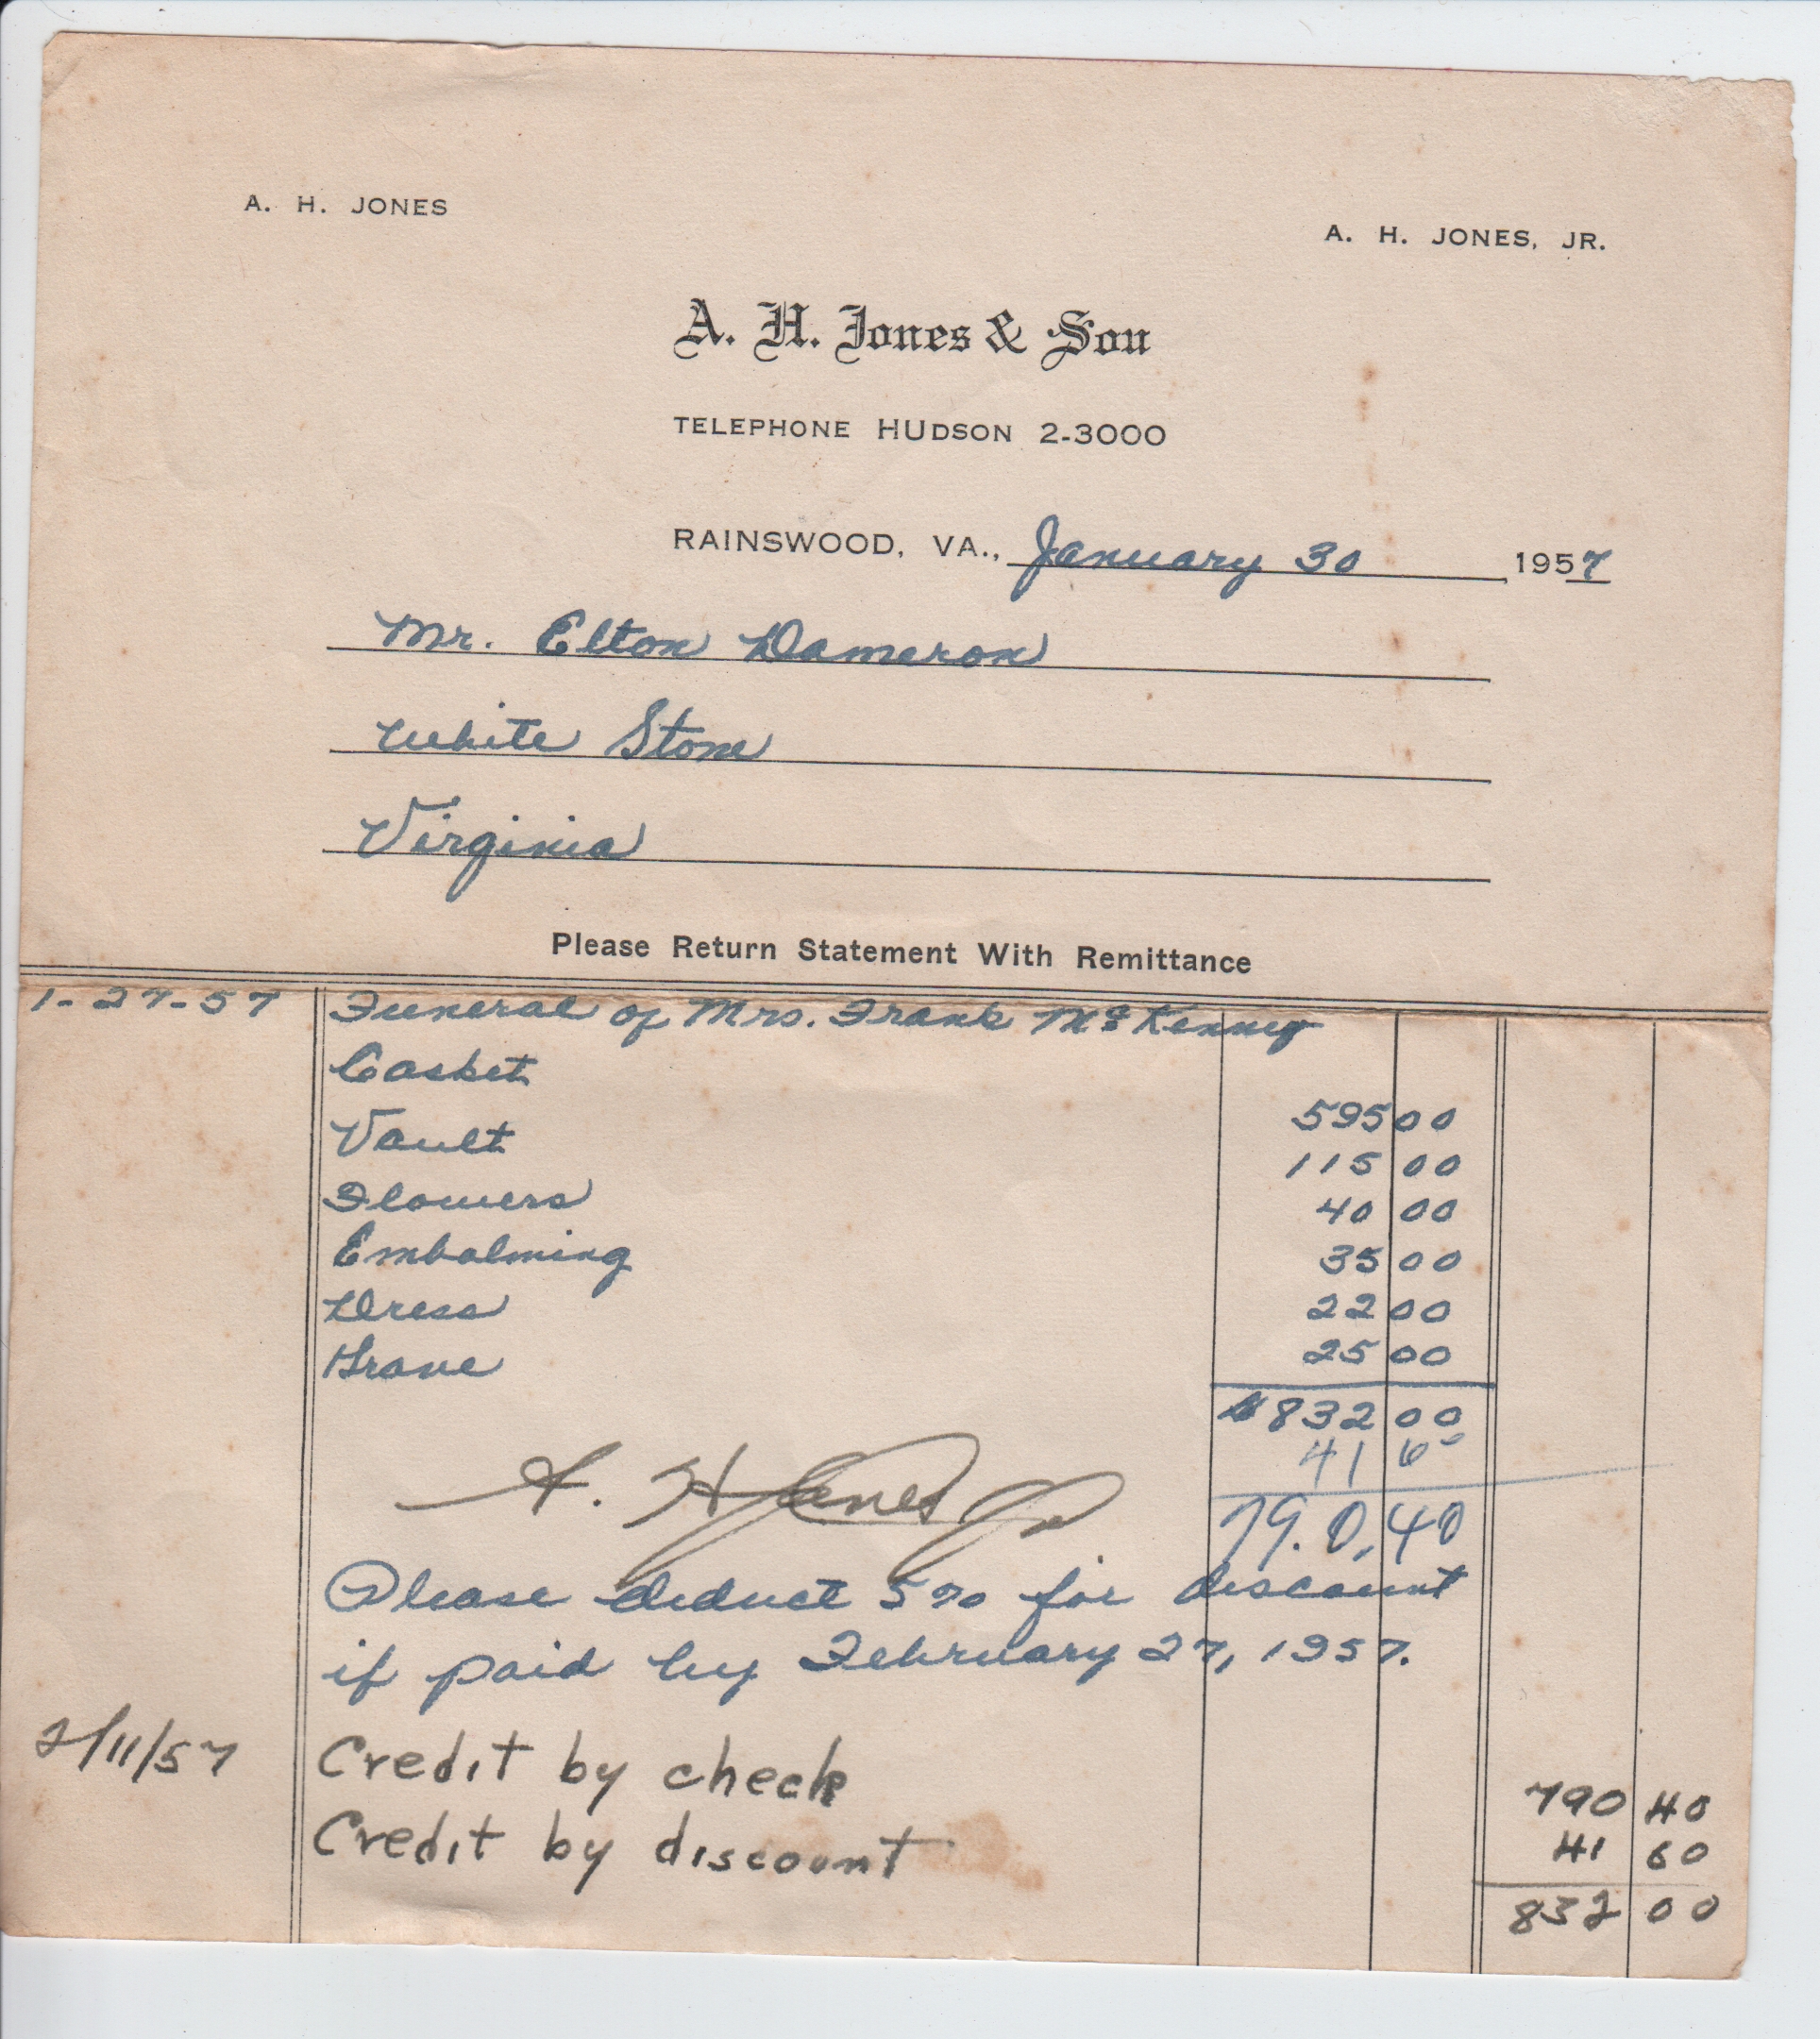 A. H. JONES
A. H. JONES, JR.
A. H. Jones & Son
TELEPHONE HUDSON 2-3000
RAINSWOOD, VA., January 30, 1957
Mr. Elton Dameron
White Stone
Virginia
Please Return Statement With Remittance
1-27-57 Funeral of Mrs. Frank McKenney
Casket 595 00
Vault 115 00
Flowers 40 00
Embalming 35 00
Dress 22 00
Grave 25 00
$832 00
41 60
790.40
A. H. Jones Jr
Please deduct 5% for discount
if paid by February 27, 1957.
2/11/57 Credit by check 790 40
Credit by discount 41 60
832 00